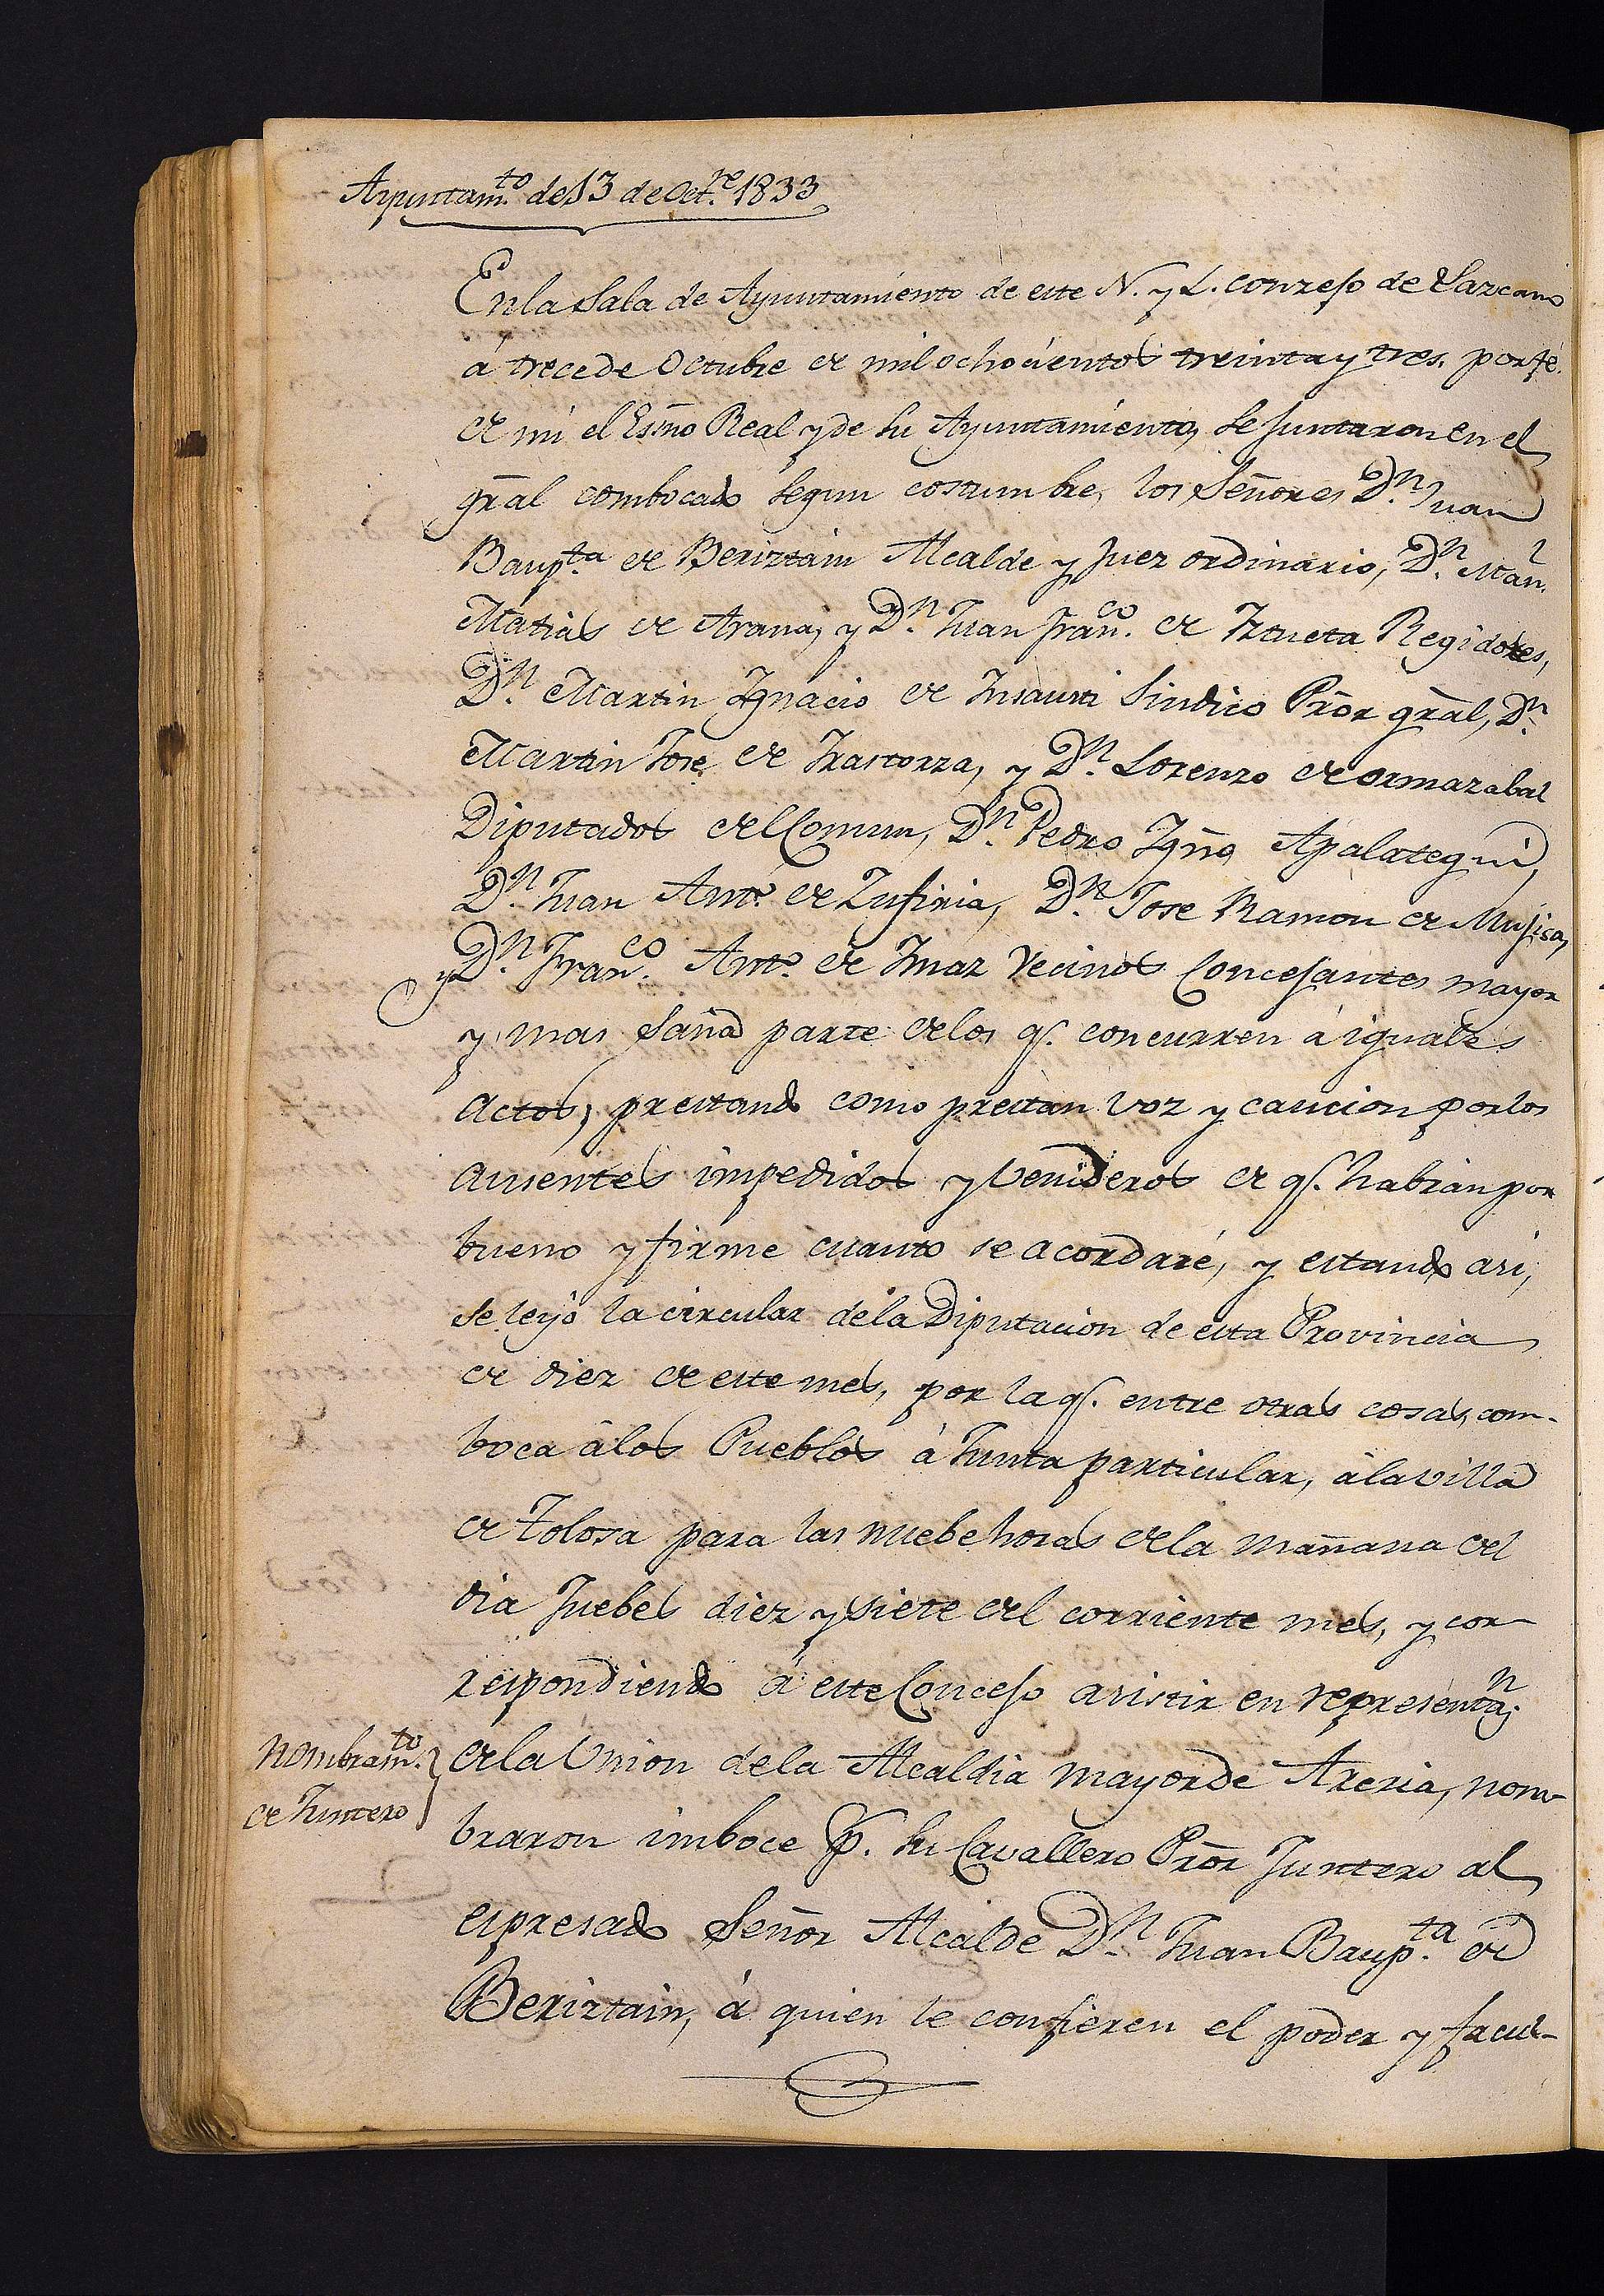 Ayuntam.to de 13 de Oct.re 1833
En la Sala de Ayuntamiento de este N. y L. conzejo de Lazcano
á trece de Octubre de mil ochocientos treinta y tres, por fé
de mi el Esno Real y de su Ayuntamiento, se juntaron en el
gral combocado segun costumbre, los Señores D.n Juan
Baup.ta de Beriztain Alcalde y Juez ordinario, D.n Man.l
Matias de Arana, y D.n Juan Fran.co de Iztueta Regidores,
D.n Martin Ygnacio de Insausti Sindico Pror gral, D.n
Martin Jose de Irastorza, y D.n Lorenzo de Ormazabal
Diputados del Comun, D.n Pedro Igno Apalategui,
D.n Juan Ant.o de Zufiria, D.n Jose Ramon de Mujica,
y D.n Fran.co Ant.o de Imaz Vecinos Concejantes mayor
y mas sana parte de los q.e concurren á iguales
actos, prestando como prestan voz y caucion por los
ausentes impedidos y venideros de q.e habrán por
bueno y firme cuanto se acordaré, y estando asi,
se leyó la circular de la Diputacion de esta Provincia
de diez de este mes, por la q.e entre otras cosas, com-
boca á los Pueblos á Junta particular, á la villa
de Tolosa para las nuebe horas de la mañana del
dia Juebes diez y siete del corriente mes, y cor
respondiendo á este Concejo asistir en representa.n
de la Union de la Alcaldia mayor de Areria, nom-
braron imboce p. su Cavallero Pror Juntero al
espresado Señor Alcalde D.n Juan Baup.ta de
Beriztain, á quien le confieren el poder y facul-
Nombram.to
de Juntero